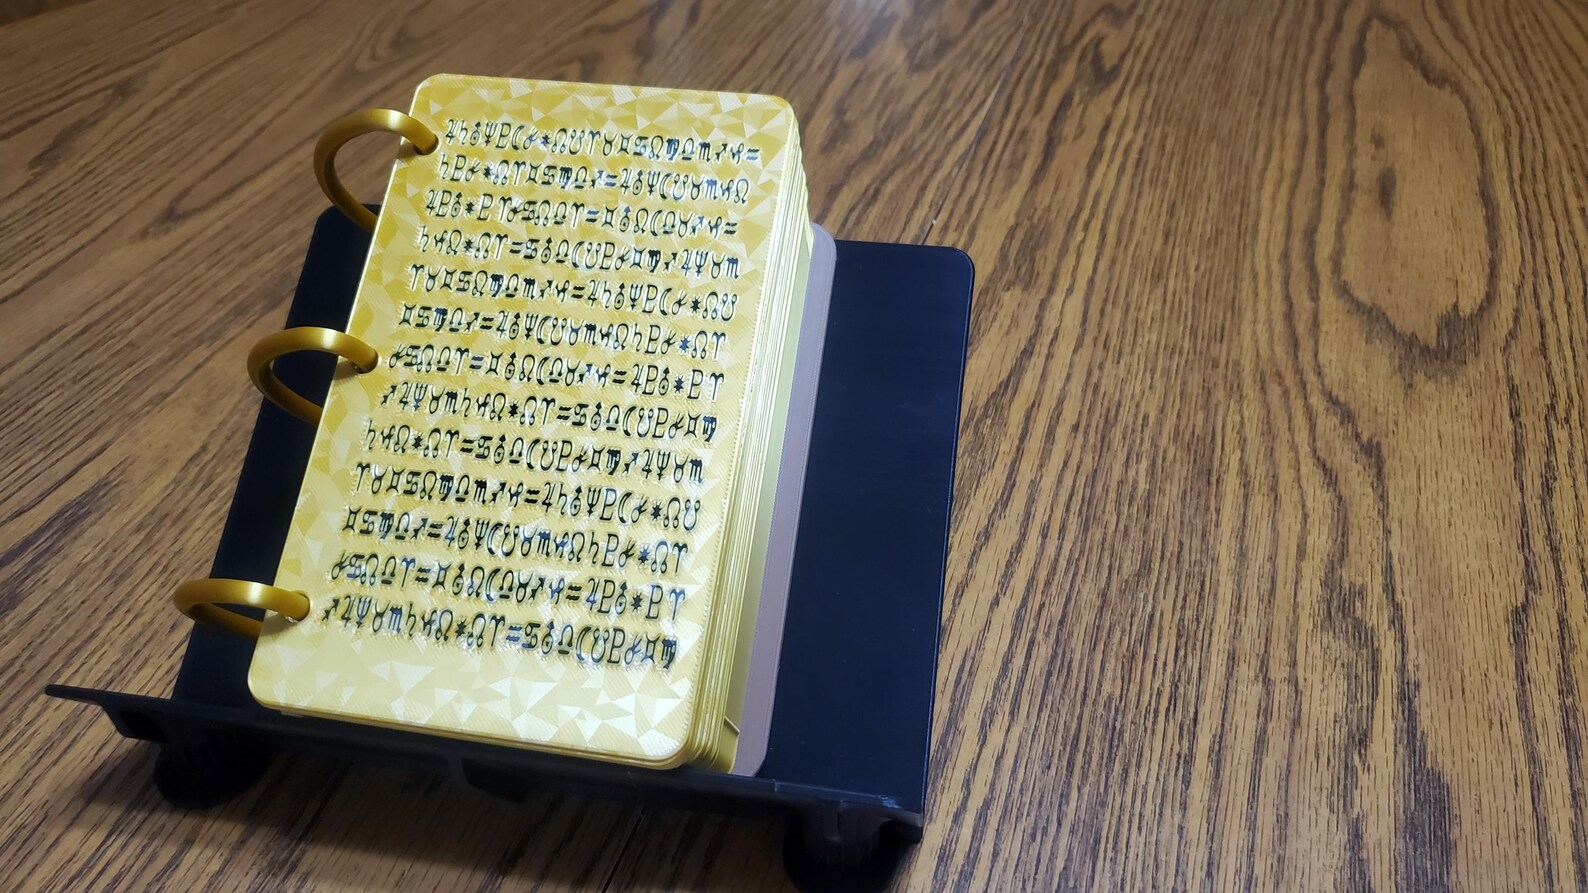 ♃♄⛢♆♇☾☄✶☊☋♈♉♊♋♌♍♎♏♐♑♒
♄♇☄✶☊♈♊♋♍♎♐♒♃⛢♆☾☋♉♏♑♌
♃♇⛢✶♇ ♈☄♋☊♎♈♒♊⛢☊☾♎♉♐♑♒
♄♑♌✶☊♈♒♋⛢♎☾☋♇☄♊♍♐♃♆♉♏
♈♉♊♋♌♍♎♏♐♑♒♃♄⛢♆♇☾☄✶☊☋
♊♋♍♎♐♒♃⛢♆☾☋♉♏♑♌♄♇☄✶☊♈
☄♋☊♎♈♒♊⛢☊☾♎♉♐♑♒♃♇⛢✶♇♈
♐♃♆♉♏♄♑♌✶☊♈♒♋⛢♎☾☋♇☄♊♍
♄♑♌✶☊♈♒♋⛢♎☾☋♇☄♊♍♐♃♆♉♏
♈♉♊♋♌♍♎♏♐♑♒♃♄⛢♆♇☾☄✶☊☋
♊♋♍♎♐♒♃⛢♆☾☋♉♏♑♌♄♇☄✶☊♈
☄♋☊♎♈♒♊⛢☊☾♎♉♐♑♒♃♇⛢✶♇♈
♐♃♆♉♏♄♑♌✶☊♈♒♋⛢♎☾☋♇☄♊♍